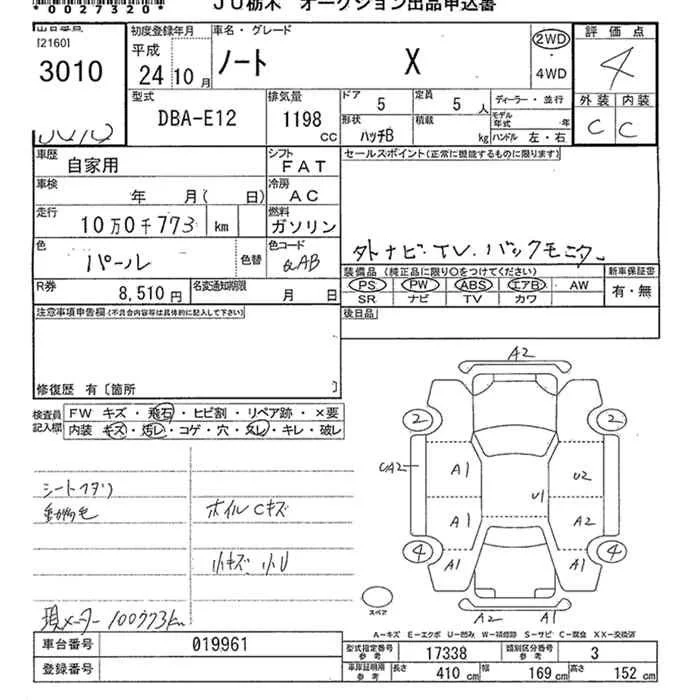 *0027320*
JU栃木 オークション出品申込書
出品番号 初度登録年月 車名・グレード 2WD 評価点
[2160]
3010 平成 24年10月 ノート X ・4WD 4
型式 排気量 ドア 5 定員 5人 ディーラー・並行 外装 内装
DBA-E12 1198 cc 形状 ハッチB 積載 kg モデル年式 年 ハンドル 左・右 C C
車歴 自家用 シフト FAT セールスポイント(正常に機能するものに限ります)
車検 年 月( 日) 冷房 AC
走行 10万0千773 km 燃料 ガソリン
外ナビ・TV・バックモニター
色 パール 色替 色コード QAB
装備品(純正品に限り○をつけてください) 新車保証書
PS PW ABS エアB AW 有・無
SR ナビ TV カワ
R券 8,510円 名変通知期限 月 日
注意事項申告欄(不具合内容等は具体的に記入して下さい) 後日品
修復歴 有〔箇所 〕
検査員記入欄 FW キズ・飛石・ヒビ割・リペア跡・×要
内装 キズ・汚レ・コゲ・穴・スレ・キレ・破レ
A2
2 2
UA2 A1 U2
U1
A1 A2
4 A1 A1 4
A2 A1
シートヘタリ
動物毛 ホイルCキズ
小キズ 小U
スペア
現メーター 100773km
A−キズ E−エクボ U−凹み W−補修跡 S−サビ C−腐食 XX−交換済
車台番号 019961 型式指定番号 参考 17338 類別区分番号 参考 3
登録番号 車庫証明用 参考 長さ 410 cm 幅 169 cm 高さ 152 cm